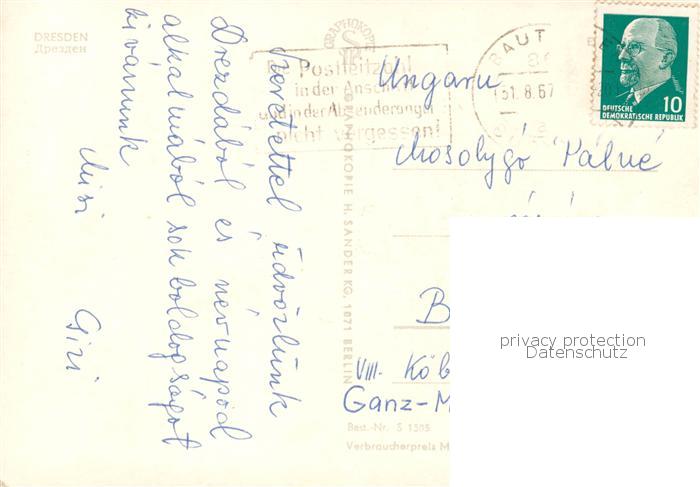 DRESDEN
Дрезден
Szeretettel üdvözlünk
Drezdából es nevnapod
alkalmából sok boldogságot
kivánunk
Misi
Gizi
GRAPHOKOPIE H. SANDER KG, 1071 BERLIN
Postleitzahl
in der Anschrift
und in der Absenderangabe
nicht vergessen!
BAUT
31.8.67
10
DEUTSCHE
DEMOKRATISCHE REPUBLIK
Ungarn
Mosolygó Pálné
B
VIII. Köb
Ganz-M
Best.-Nr. S 1505
Verbraucherpreis M
privacy protection
Datenschutz